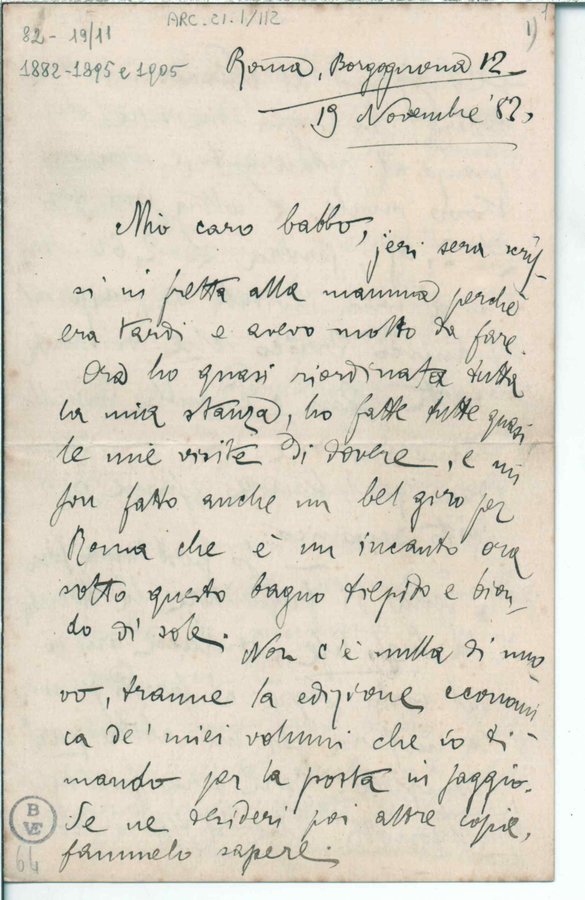 ARC.21.1/112
82-19/11
1
1)
1882-1895 e 1905
Roma, Borgognona 12
19 Novembre '82.
Mio caro babbo,
jeri sera scris-
si in fretta alla mamma perchè
era tardi e avevo molto da fare.
Ora ho quasi riordinata tutta
la mia stanza, ho fatte tutte quasi
le mie visite di dovere, e mi
son fatto anche un bel giro per
Roma che è un incanto ora
sotto questo bagno tiepido e bion-
do di sole.
Non c'è nulla di nuo
vo, tranne la edizione economi
ca de' miei volumi che io ti
mando per la posta in saggio.
Se ne desideri poi altre copie,
fammelo sapere.
B
VE
64